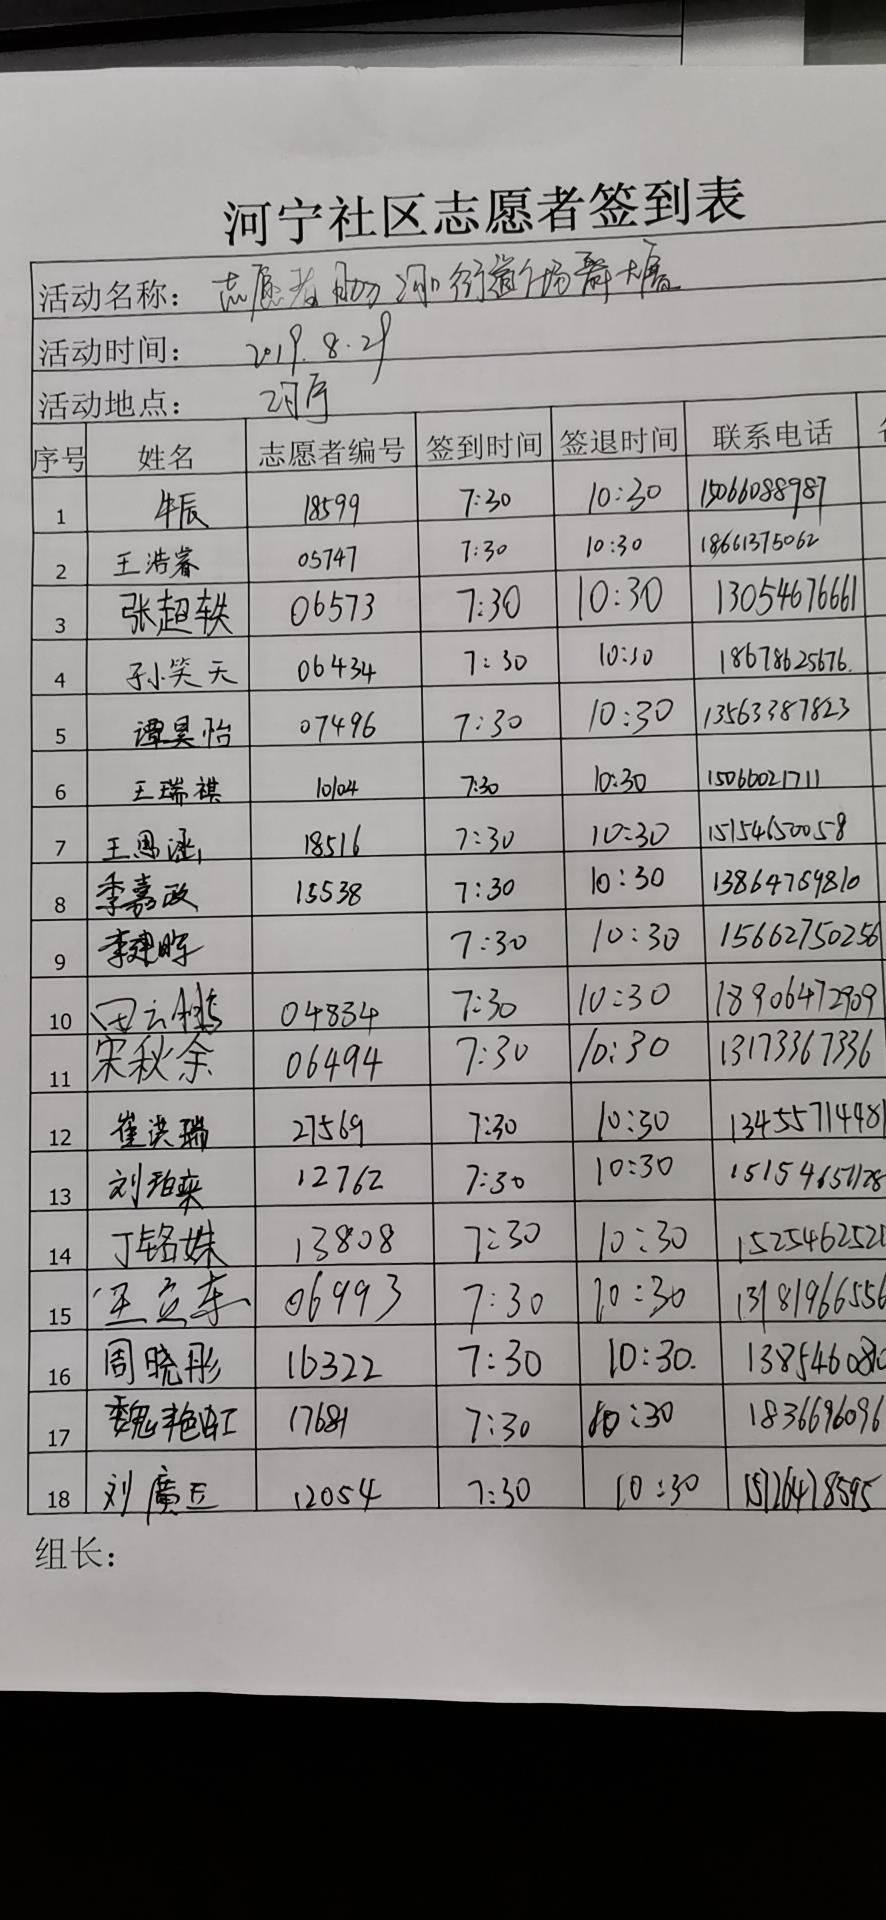 河宁社区志愿者签到表
活动名称： 志愿者助 街道广场舞大赛
活动时间： 2019.8.29
活动地点：
序号 姓名 志愿者编号 签到时间 签退时间 联系电话
1 牛辰 18599 7:30 10:30 15066088987
2 王浩睿 05747 7:30 10:30 18661375062
3 张超轶 06573 7:30 10:30 13054676661
4 孙笑天 06434 7:30 10:30 18678625676.
5 谭昊怡 07496 7:30 10:30 13563387823
6 王瑞祺 10104 7:30 10:30 15066021711
7 王思涵 18516 7:30 10:30 15154650058
8 季嘉政 15538 7:30 10:30 13864769810
9 李建晖 7:30 10:30 15662750256
10 田云鹤 04834 7:30 10:30 18906472909
11 宋秋余 06494 7:30 10:30 13173367336
12 崔洪瑞 27569 7:30 10:30 13455714481
13 刘珀奕 12762 7:30 10:30 15154651128
14 丁铭姝 13808 7:30 10:30 1525462521
15 王立东 06993 7:30 10:30 13181966556
16 周晓彤 16322 7:30 10:30. 1385460810
17 魏艳红 17681 7:30 10:30 1836696096
18 刘廣 12054 7:30 10:30 15126418595
组长：